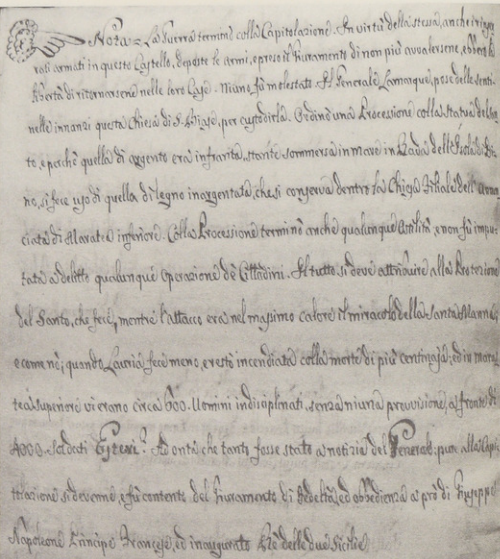 Nota = La Guerra terminò colla Capitolazione. In virtù della stessa, anche i rigu
rati armati in questo Castello, deposte le armi, e preso il Giuramento di non più avvalersene, ebbero la
libertà di ritornarsene nelle loro Case. Niuno fù molestato. Il Generale Lamarque, pose delle senti
nelle innanzi questa Chiesa di S. Biagio, per custodirla. Ordinò una Processione colla Statua del San
to, e perchè quella di argento era infranta, stante sommersa in mare in Rada dell' Isola di Di
no, si fece uso di quella di legno inargentata, che si conserva dentro la Chiesa filiale dell' Annun
ciata di Maratea inferiore. Colla Processione terminò anche qualunque ostilità, e non fù impu
tata a delitto qualunque operazione de' Cittadini. Il tutto si deve attribuire alla Protezione
del Santo, che fece, mentre l'attacco era nel massimo calore il miracolo della Santa Manna;
e come nò; quando Lauria fece meno, e restò incendiata colla morte di più centinaja; ed in Mara
tea superiore vi erano circa 600. Uomini indisciplinati, senza niuna provvisione, a fronte di
4000. Soldati Esteri? Ad onta che tanto fosse stato a notizia del Generale; pure alla Capi
tolazione si devenne, e fù contento del Giuramento di Fedeltà, ed obbedienza a prò di Giuseppe
Napoleone Principe Francese, ed inaugurato Rè delle due Sicilie